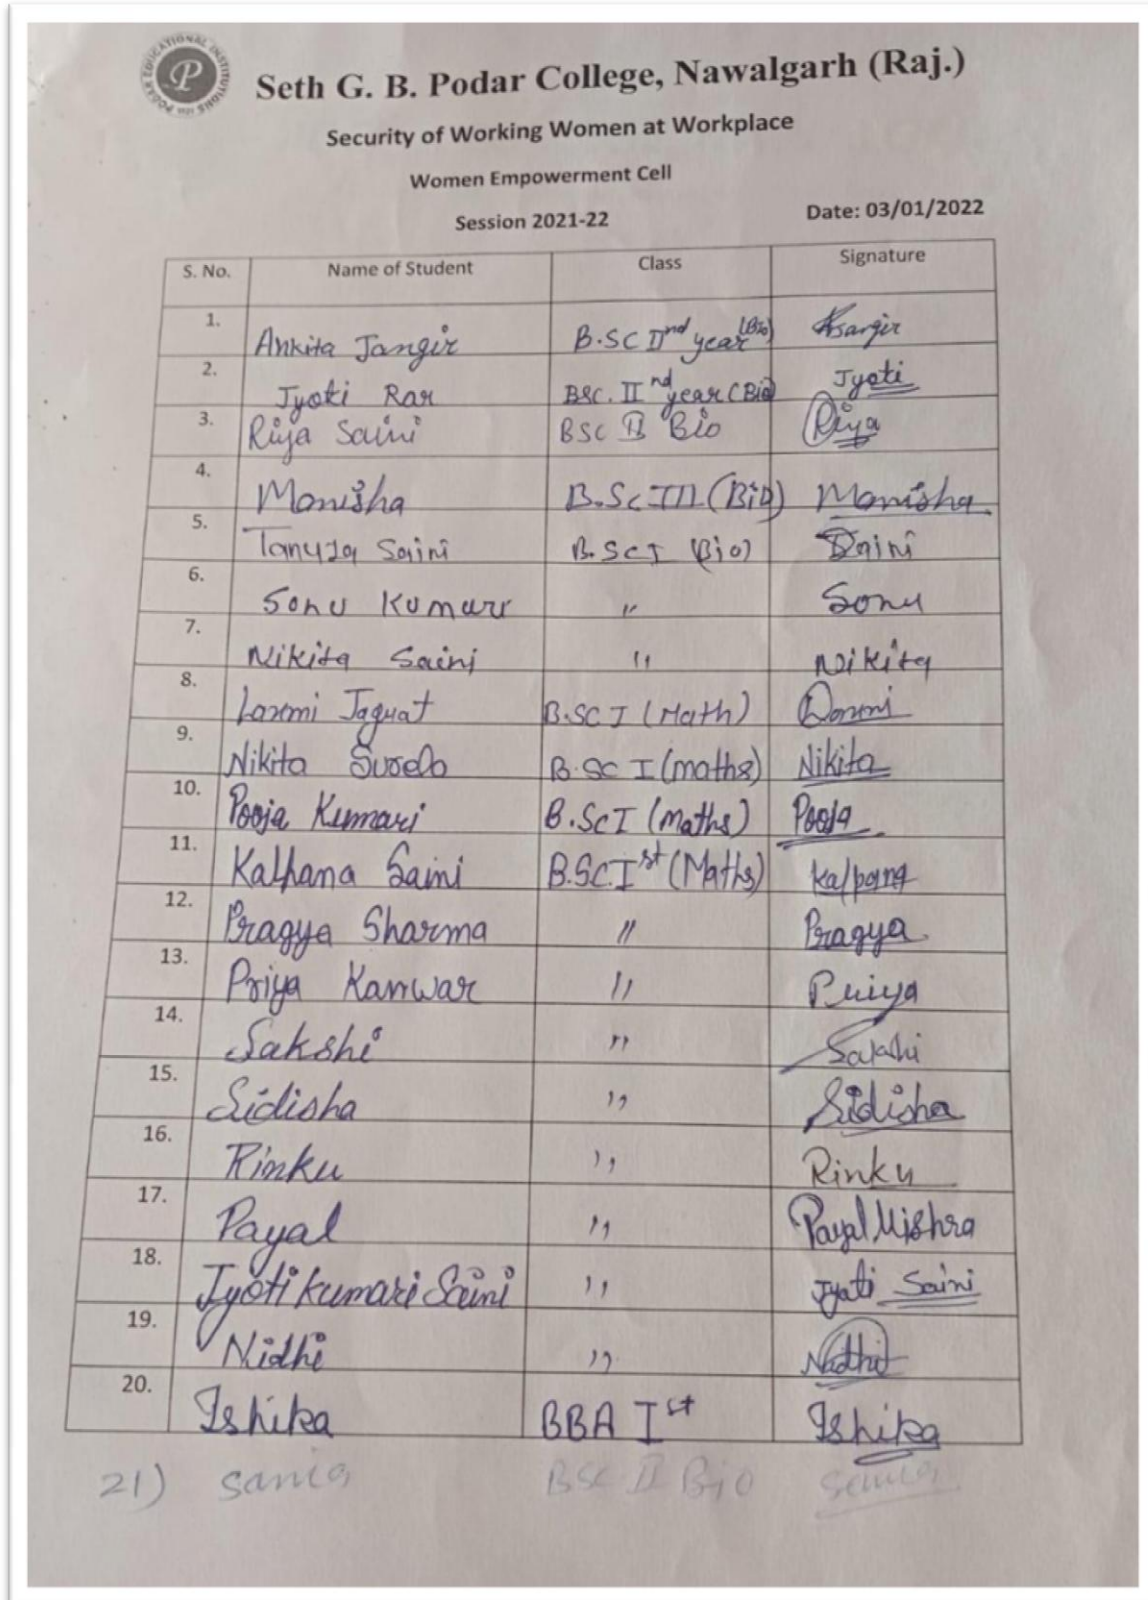 PODAR EDUCATIONAL INSTITUTIONS
P
Seth G. B. Podar College, Nawalgarh (Raj.)
Security of Working Women at Workplace
Women Empowerment Cell
Session 2021-22 Date: 03/01/2022
S. No. Name of Student Class Signature
1. Ankita Jangir B.SC IInd year (Bio) Jangir
2. Jyoti Rar BSC. IInd year (Bio) Jyoti
3. Riya Saini BSC II Bio Riya
4. Manisha B.Sc III (Bio) Manisha
5. Tanuja Saini B.Sc I (Bio) Saini
6. Sonu Kumari " Sonu
7. Nikita Saini " Nikita
8. Laxmi B.SC I (Math)
9. Nikita B.SC I (maths) Nikita
10. Pooja Kumari B.Sc I (Maths) Pooja
11. Kalpana Saini B.SC. Ist (Maths) Kalpana
12. Pragya Sharma " Pragya
13. Priya Kanwar " Priya
14. Sakshi " Sakshi
15. Sidisha " Sidisha
16. Rinku " Rinku
17. Payal " Payal Mishra
18. Jyoti Kumari Saini " Jyoti Saini
19. Nidhi " Nidhi
20. Ishika BBA Ist Ishika
21) Sania BSC II Bio Sania